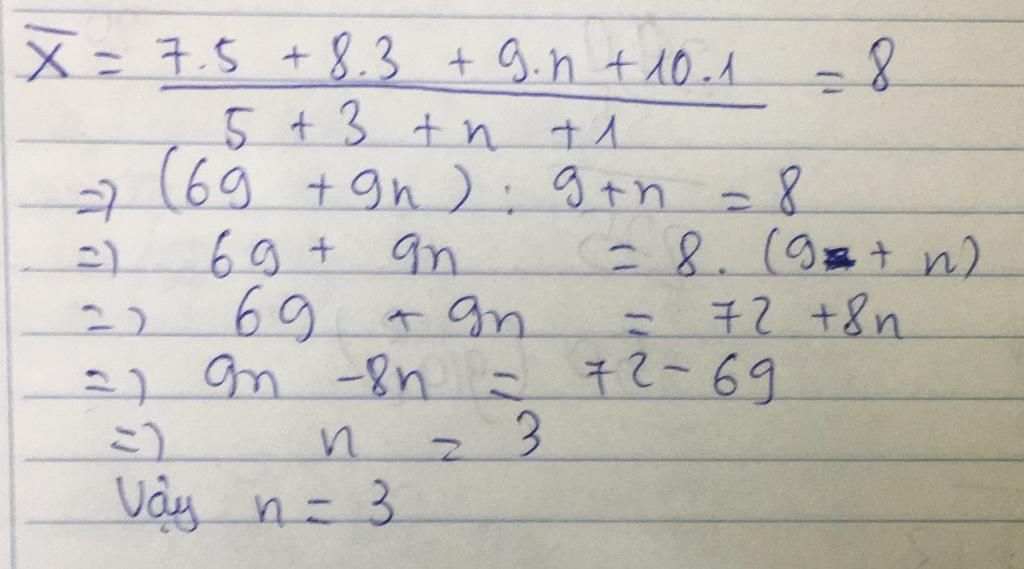 X̅ = 7.5 + 8.3 + 9.n + 10.1 = 8
5 + 3 + n + 1
=> (69 + 9n) : 9+n = 8
=> 69 + 9n = 8. (9 + n)
=> 69 + 9n = 72 + 8n
=> 9n - 8n = 72 - 69
=> n = 3
Vậy n = 3